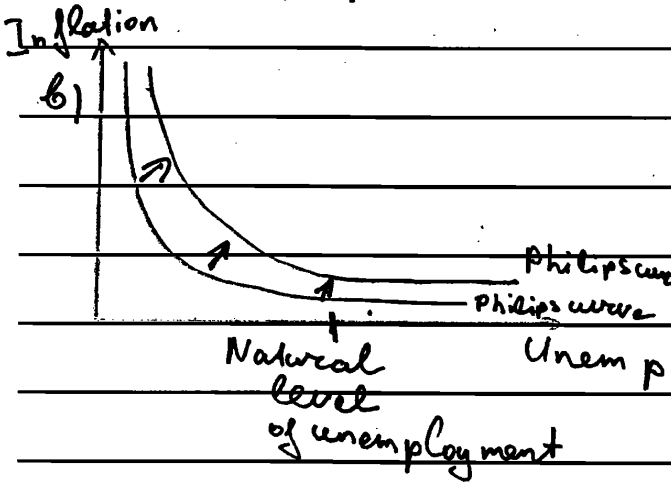 Inflation
b)
Philips curve
Philips curve
Unemp
Natural
level
of unemployment